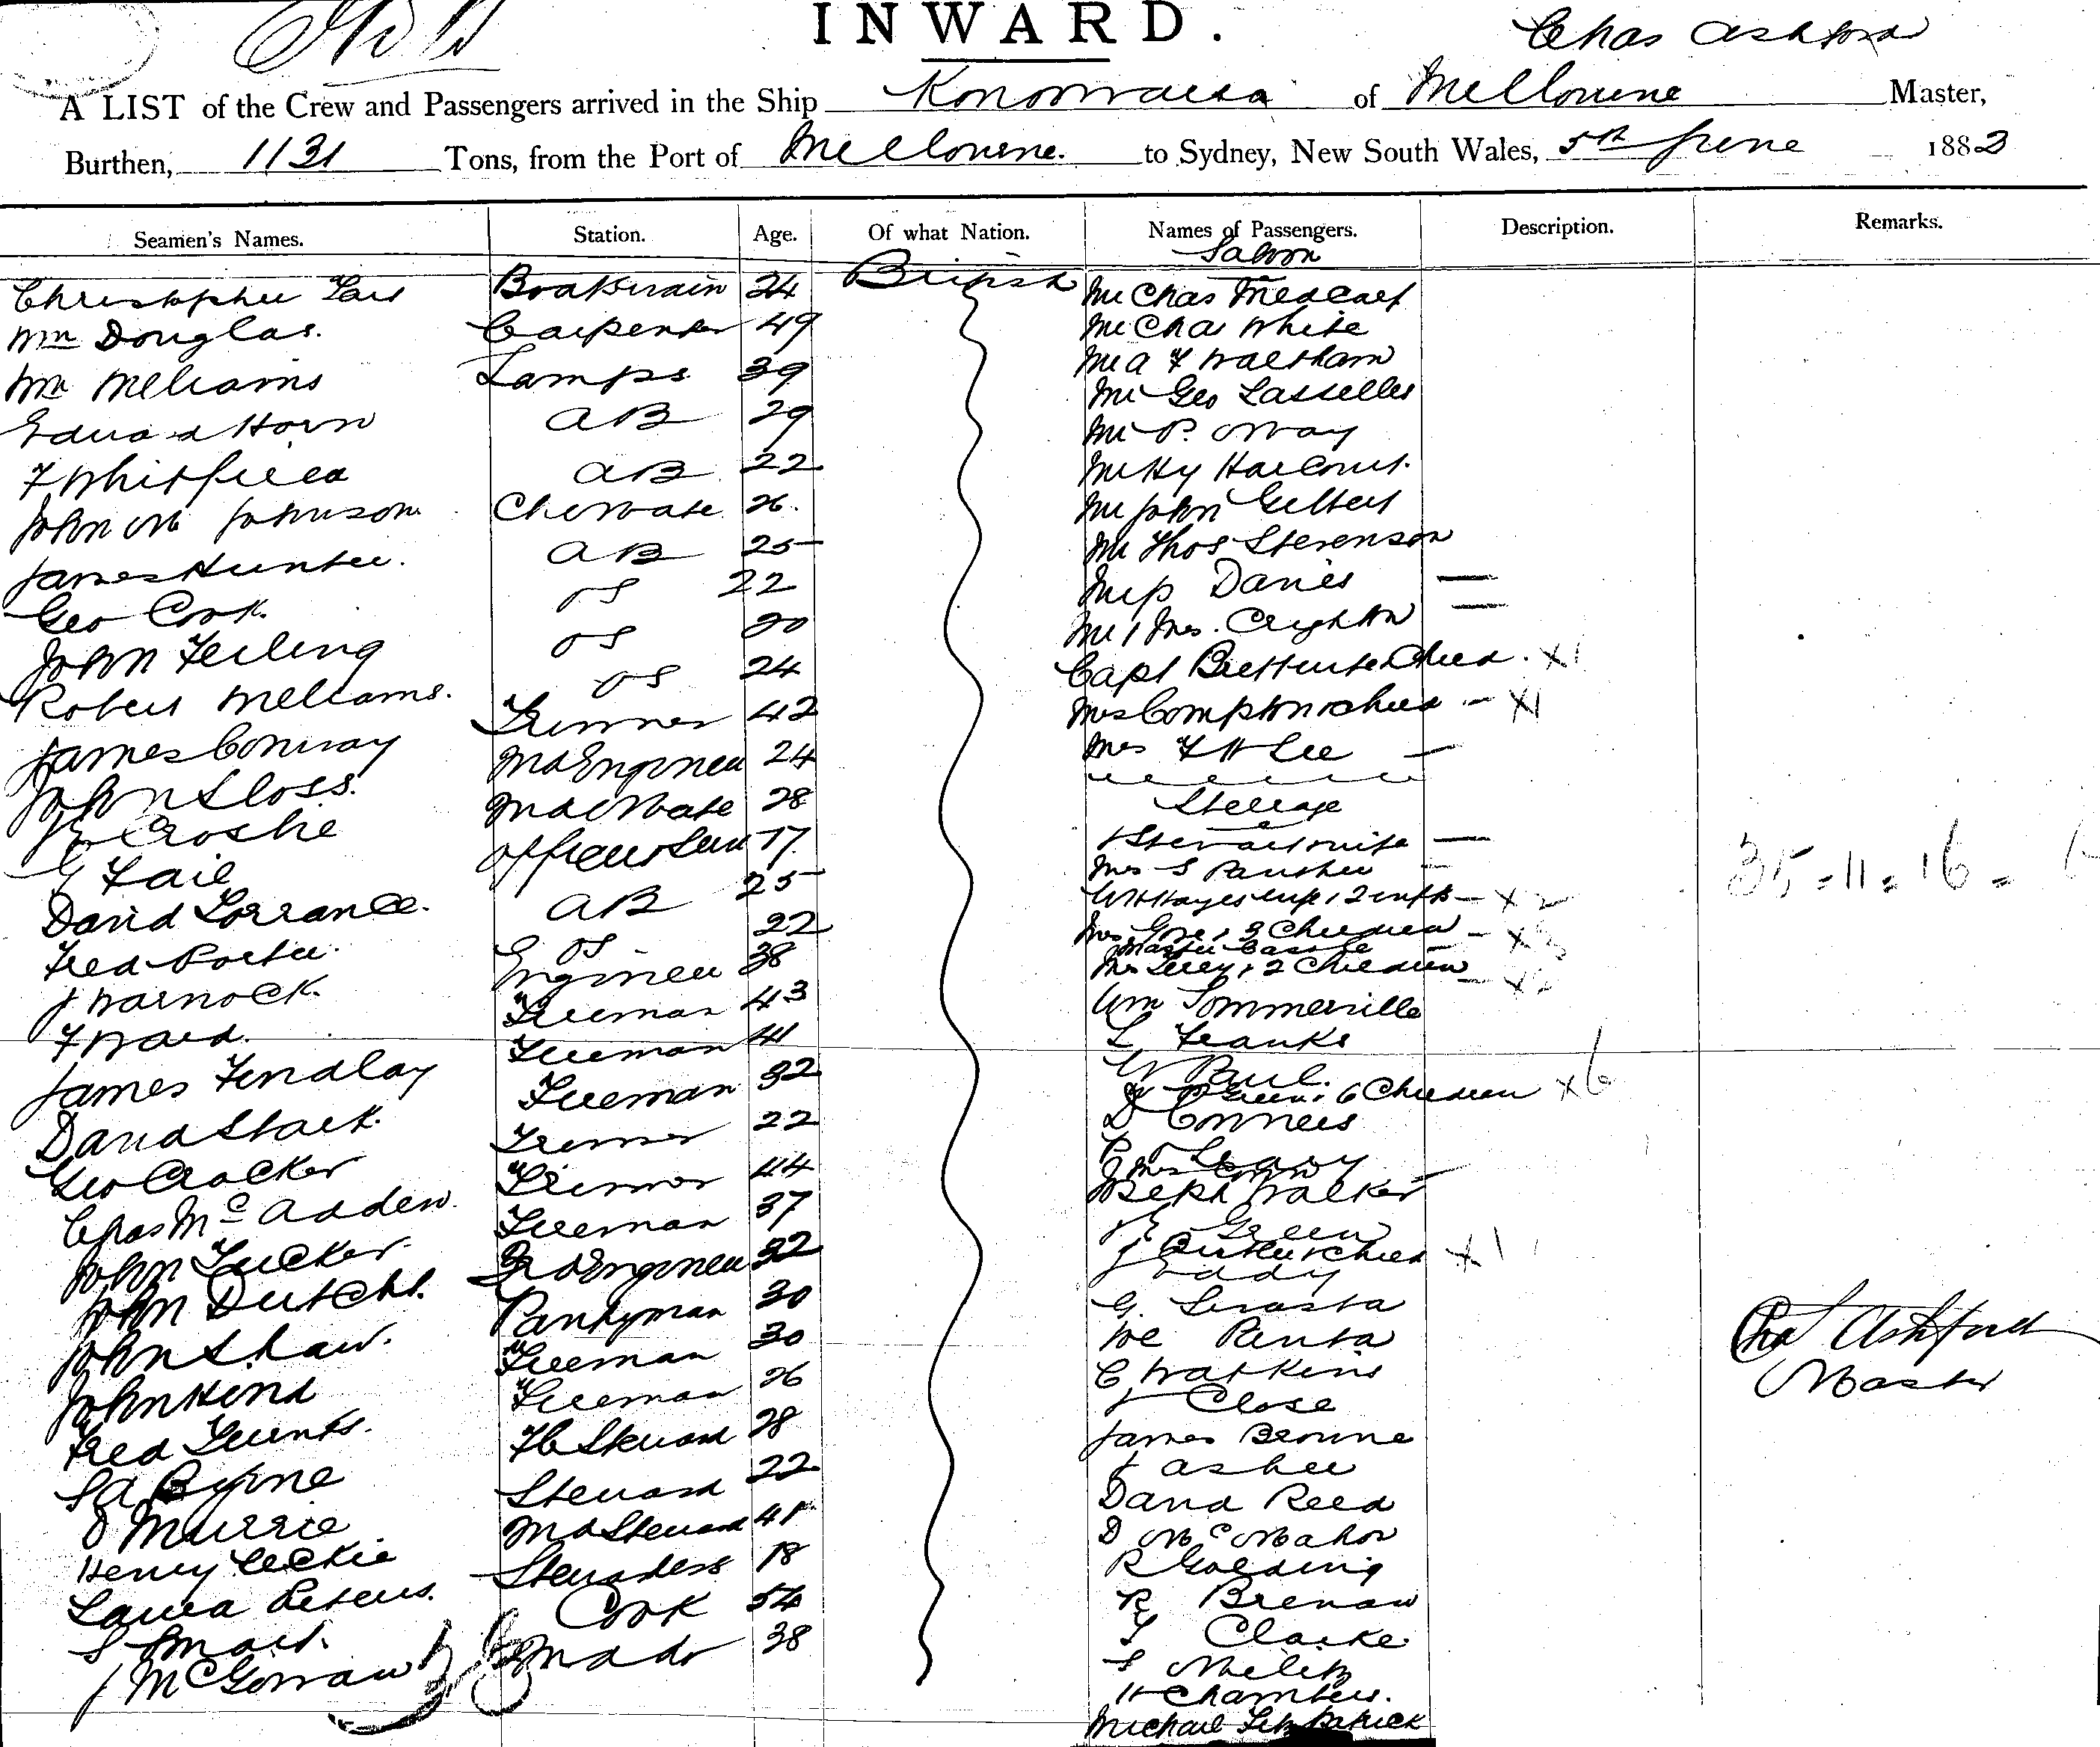 INWARD.
Chas Ashford
A LIST of the Crew and Passengers arrived in the Ship Konoowarra of Melbourne Master,
Burthen, 1131 Tons, from the Port of Melbourne. to Sydney, New South Wales, 5th June 1883
Seamen's Names. Station. Age. Of what Nation. Names of Passengers. Description. Remarks.
Saloon
Christopher Boatswain 24 British Mr Chas Medcalf
Wm Douglas. Carpenter 49 Mr Chas White
Wm Williams Lamps 39 Mr A F Waltham
Edward Horn AB 29 Mr Geo Lasselles
F Whitfield AB 22 Mr P. Moray
John M Johnson Ch Mate 26. Mr Hy Harcourt.
James Hunter. AB 25 Mr John Gilbert
Geo Cook. OS 22 Mr Thos Stevenson
John Feiling OS 20 Davies —
Robert Williams. OS 24 Mr & Mrs. Creighton —
James Conway Trimmer 42 Capt Child. X1
John Sloss. 2nd Engineer 24 Mrs Compton & Child — X1
Croskie 2nd Mate 28 Mrs F H Lee —
Fail Officers Servt 17 Steerage
David Lorrance. AB 25 J Stewart & wife —
Fred Porter. OS 22 Mrs S —
J Warnock. Engineer 38 W H Hayes wife & 2 infts — X2
F Ward. Fireman 43 Mrs Gore & 3 Children — X3
James Findlay Fireman 41 Mrs & 2 Children — X2
David Stark. Fireman 32 Wm Sommerville
Geo Crocker Trimmer 22 L Franks
Chas McAdden. Trimmer 44 W Paul.
John Tucker. Fireman 37 Green & 6 Children X6
John Dutcht. 3rd Engineer 32 D Conners
John Shaw. Pantryman 30 P Leary
John Hind Fireman 30 Mrs
Fred Fireman 26 Joseph Walker
S A Byrne F C Steward 28 Green
D Murrie Steward 22 J & Child X1
Henry Leckie 2nd Steward 41 Eddy
Laura Peters. Stewardess 18 G.
S Smart. Cook 54 Joe
J McGowan 2nd do 38 C Watkins
J Close
James Browne
J Asher
David Reed
D McMahon
R Golding
R Brenan
T Clarke
S
H Chambers.
Michael Fitzpatrick
35 = 11 = 16 =
Chas Ashford
Master